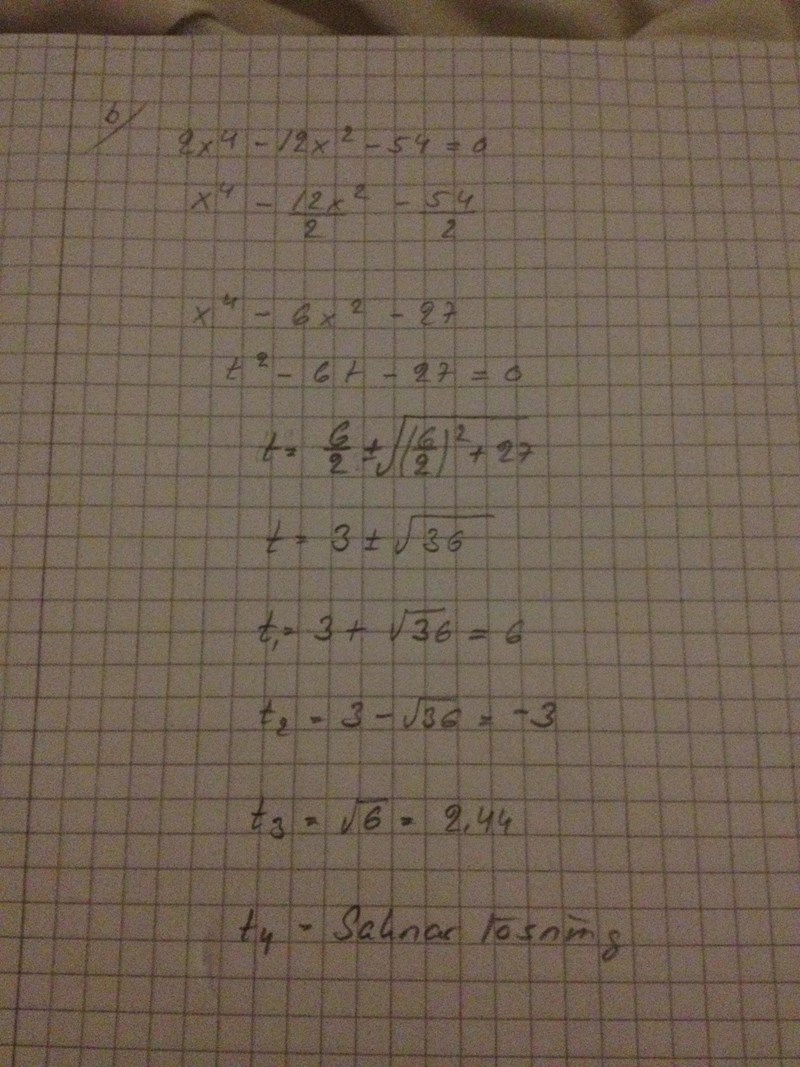 b/
2x⁴ - 12x² - 54 = 0
x⁴ - 12x²/2 - 54/2
x⁴ - 6x² - 27
t² - 6t - 27 = 0
t = 6/2 ± √((6/2)² + 27
t = 3 ± √36
t₁ = 3 + √36 = 6
t₂ = 3 - √36 = -3
t₃ = √6 = 2,44
t₄ - Saknar lösning